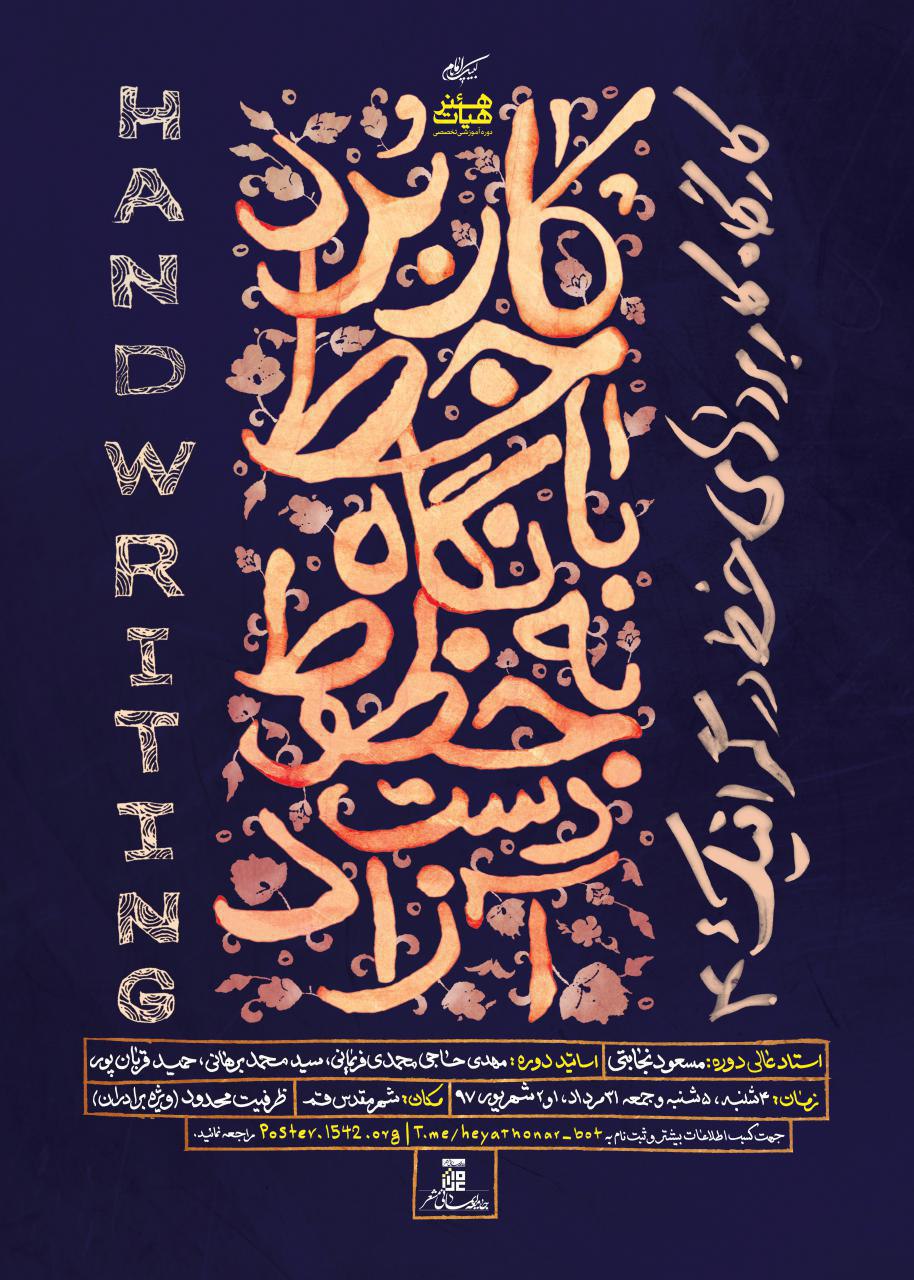 لبیک یا امام
هنر
هیات
دوره آموزشی تخصصی
کاربرد
خط
با نگاه
به خطوط
دست
آزاد
کارگاه کاربردی خط در گرافیک ۴
HANDWRITING
استاد عالی دوره: مسعود نجابتی
اساتید دوره: مهدی حاجی محمدی فریمانی، سید محمد برهانی، حمید قربان پور
زمان: ۴شنبه، ۵شنبه و جمعه ۳۱ مرداد، ۱ و ۲ شهریور ۹۷
مکان: شهر مقدس قم
ظرفیت محدود (ویژه برادران)
جهت کسب اطلاعات بیشتر و ثبت نام به Poster.1542.org | T.me/heyathonar_bot راجعه نمائید.